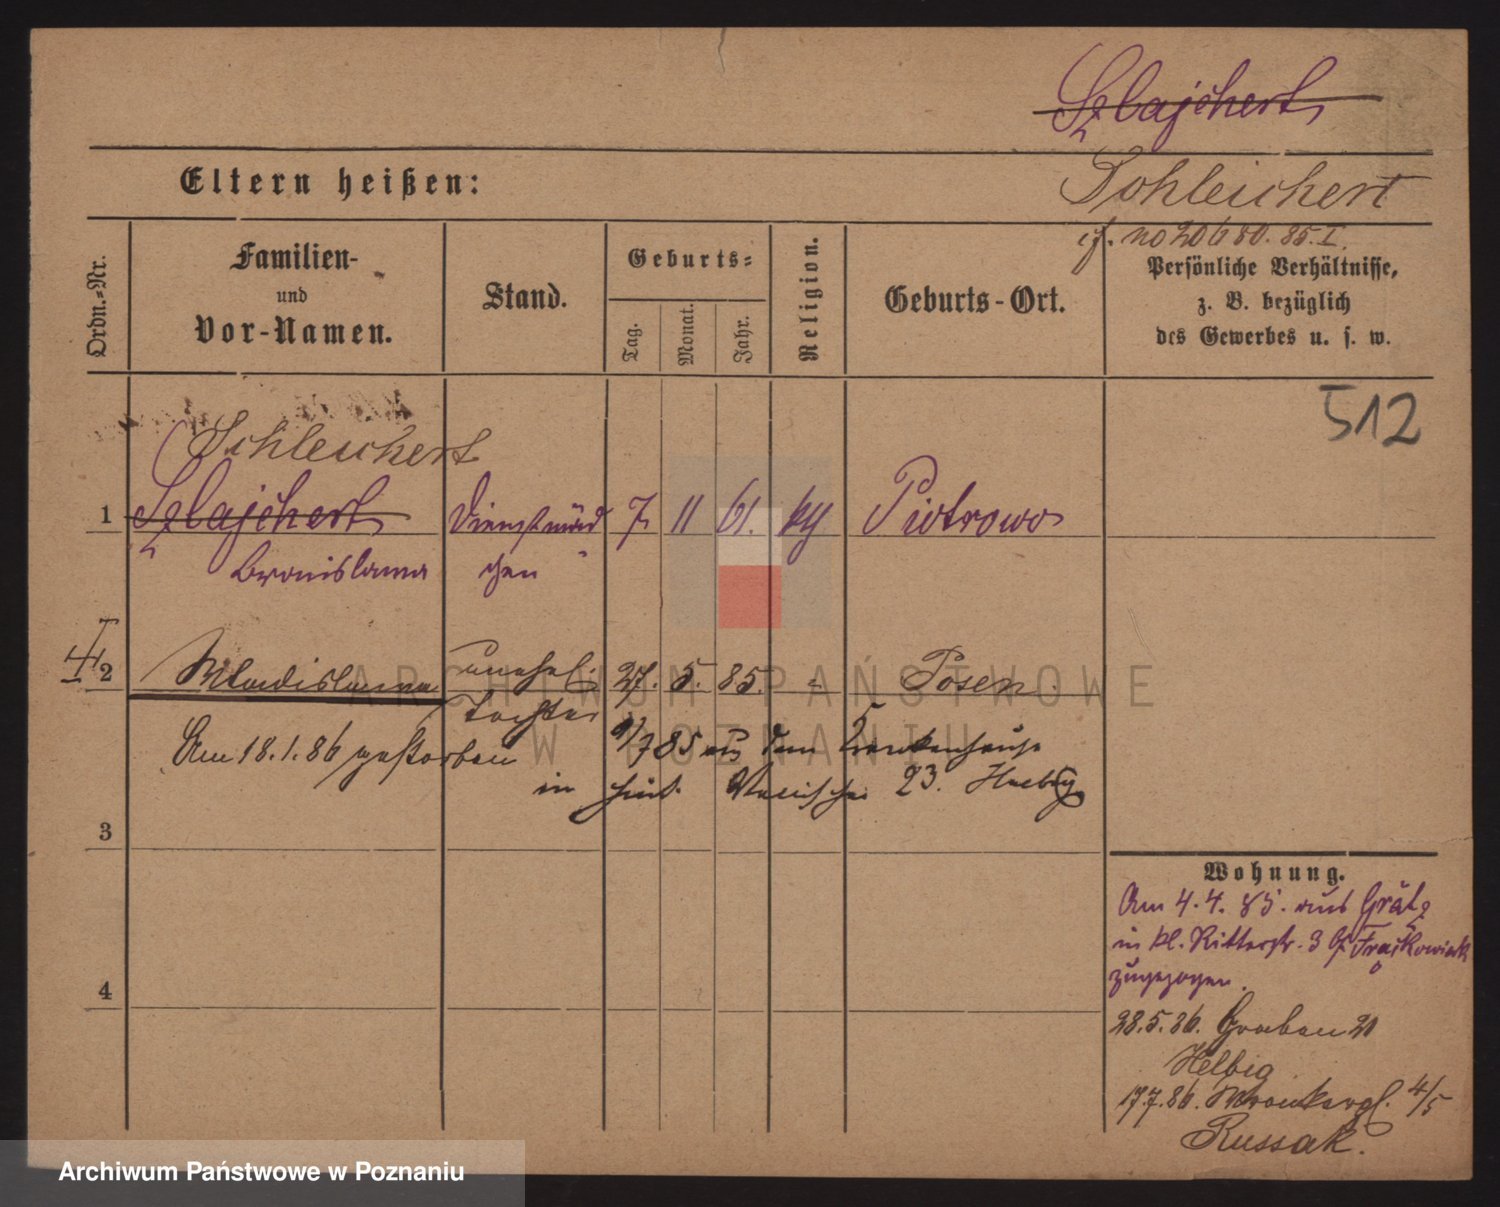 Szlajchert
Eltern heißen:
Schleichert
cf. no 20680. 85. I.
Ordn.=Nr.
Familien-
und
Vor-Namen.
Stand.
Geburts=
Tag.
Monat.
Jahr.
Religion.
Geburts-Ort.
Persönliche Verhältnisse,
z. B. bezüglich
des Gewerbes u. s. w.
512
Schleichert
1 Szlajchert Dienstmäd 7 11 61. kth Piotrowo
Bronislawa chen
2 Wladislawa unehel. 27. 5. 85. " Posen.
Tochter
Am 18.1.86 gestorben
7 85 aus dem Krankenhause
in 23. Helbig
3
4
Wohnung.
Am 4. 4. 85. aus Grätz
in kl. Ritterstr. 3 b/ Frąckowiak
zugezogen.
28.5.86. Graben 21
Helbig
17.7.86. Wronkergl. 4/5
Russak.
ARCHIWUM PAŃSTWOWE
W POZNANIU
Archiwum Państwowe w Poznaniu